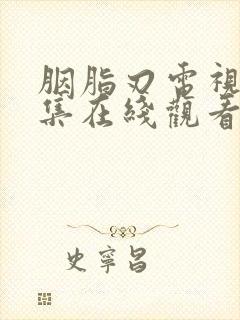 胭脂刃電視
集在綫觀看
史寧昌